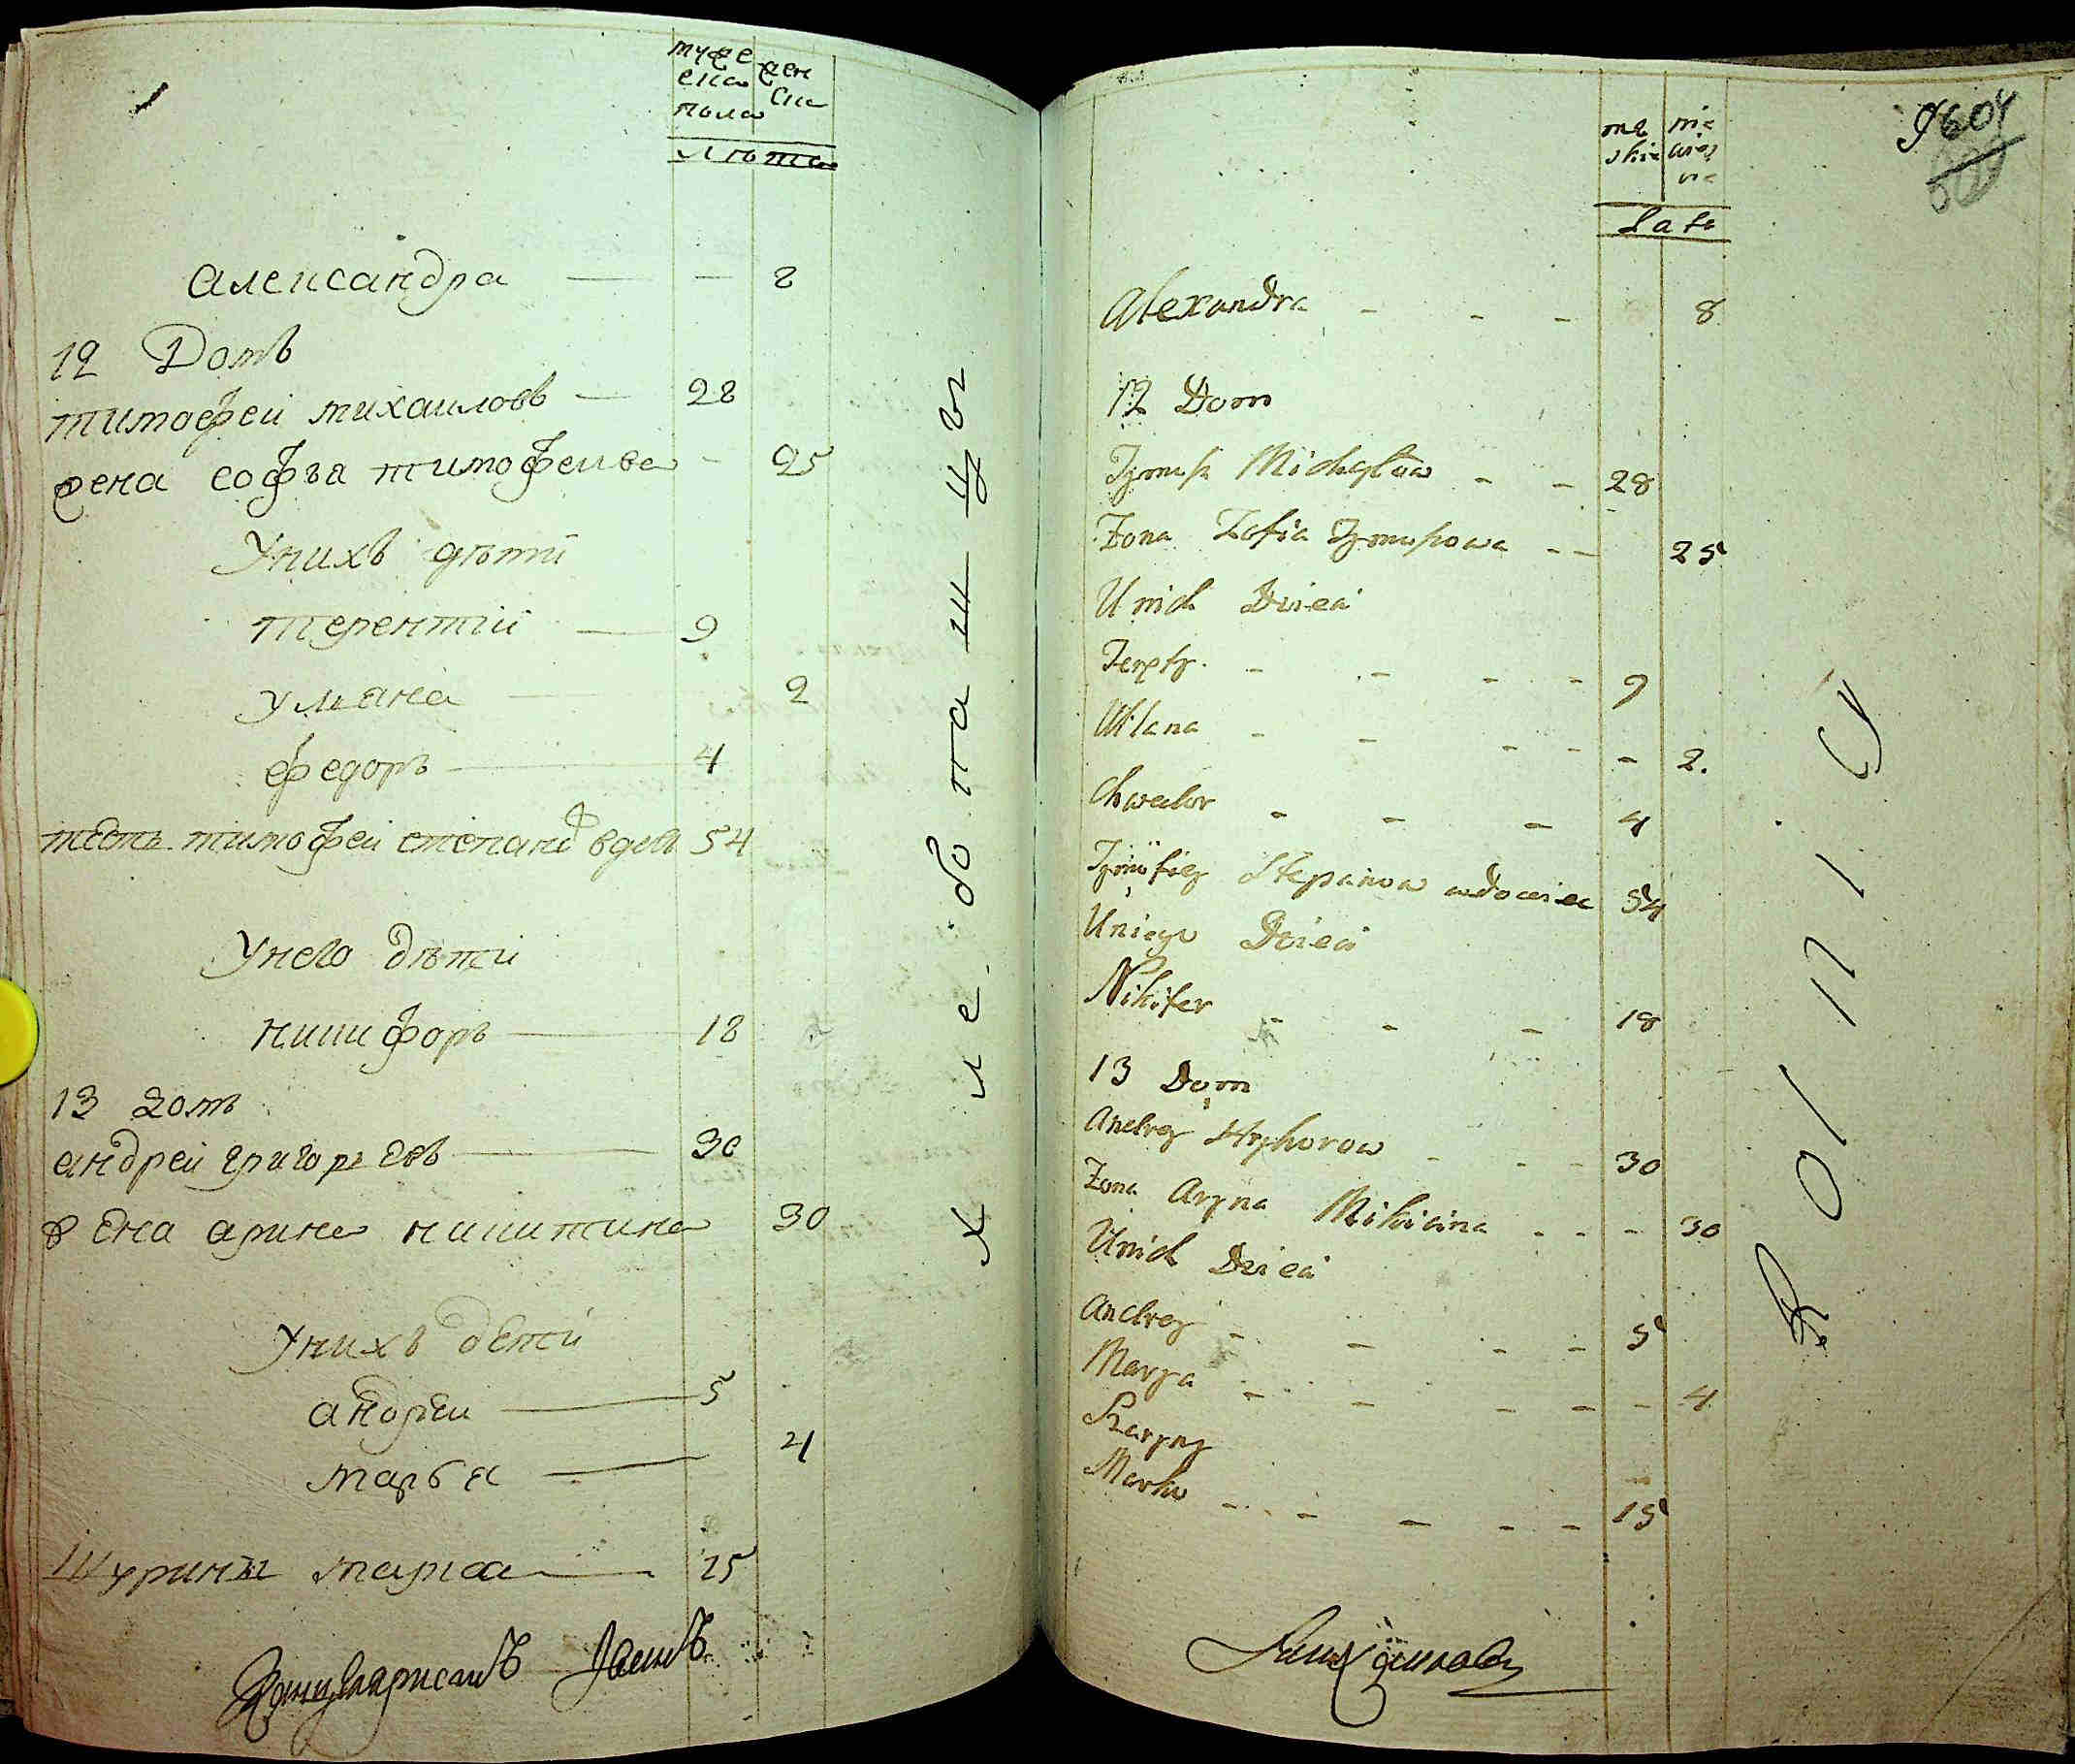 муже жен
ска ска
пола
лѣта
александра — — 8
12 Домъ
тимофеи михаиловъ — 28
жена софъа тимофеива - 25
Унихъ дѣти
терентии — 9
улиана — 2
федоръ — 4
тесть тимофеи степанъ вдовъ 54
Унего дѣти
никифоръ — 18
13 домъ
андреи григорьевъ — 30
жена арина никитина 30
Унихъ дети
андреи — 5
марьа — 4
Шуринъ марка — 15
хлебопашцы
9604
mę nie
skie wieś
cie
Lata
Alexandra - - - 8
12 Dom
Tymofi Michayłow - - 28
Żona Zofia Tymofiowa - - 25
Unich Dzieci
Terenty - - - - 9
Ullana - - - - - 2.
Chwedor - - - 4
Tymofiey Stepanow wdowiec 54
Uniego Dzieci
Nikifer - - - 18
13 Dom
Andrey Hryhorow - - - 30
Żona Aryna Mikicina - - - 30
Unich Dzieci
Andrey - - - - 5
Marya - - - - - 4
Szaryny
Marko - - - - - 15
Rolnicy